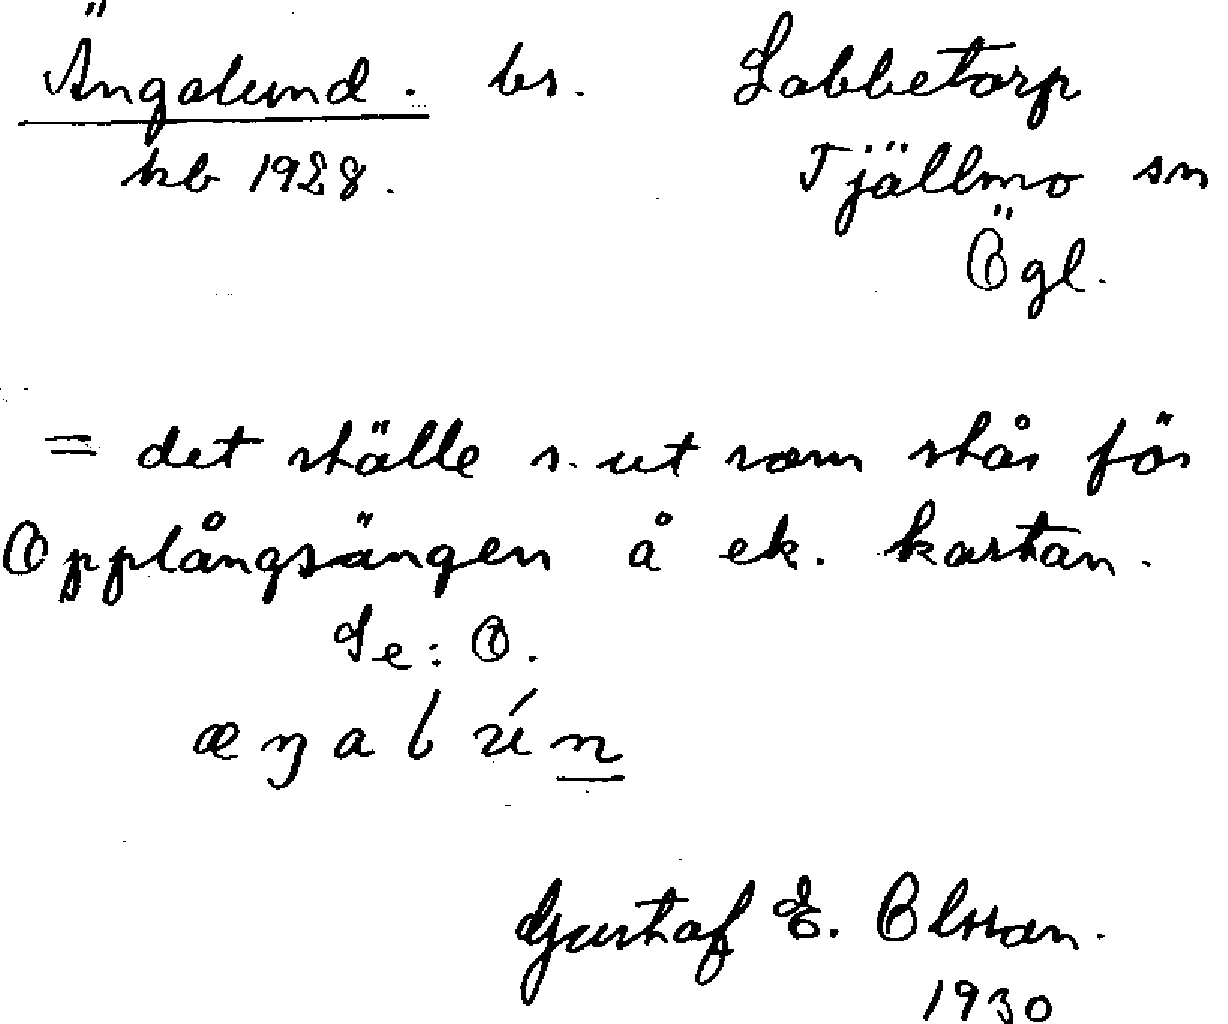 Ängalund. bs. Labbetorp
kb 1928. Tjällmo sn
Ögl.
= det ställe s. ut som står för
Opplångsängen å ek. kartan.
Se: O.
æŋalún
Gustaf E. Olsson.
1930